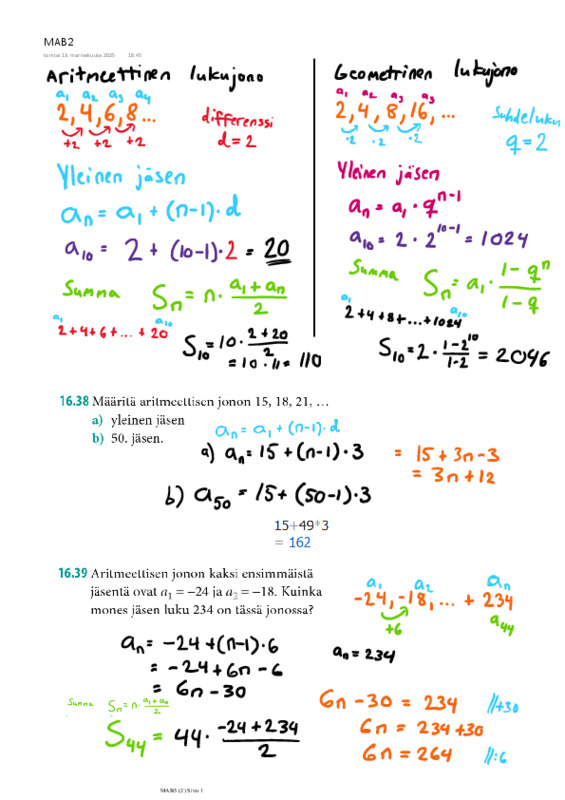 MAB2
torstai 13. marraskuuta 2025 18.45
Aritmeettinen lukujono
a₁ a₂ a₃ a₄
2, 4, 6, 8 ...
+2 +2 +2
differenssi
d = 2
Yleinen jäsen
aₙ = a₁ + (n-1)·d
a₁₀ = 2 + (10-1)·2 = 20
Summa Sₙ = n · (a₁ + aₙ)/2
a₁ a₁₀
2+4+6+... + 20
S₁₀ = 10 · (2+20)/2
= 10 · 11 = 110
Geometrinen lukujono
a₁ a₂ a₃ a₃
2, 4, 8, 16, ...
·2 ·2 ·2
Suhdeluku
q = 2
Yleinen jäsen
aₙ = a₁ · qⁿ⁻¹
a₁₀ = 2 · 2¹⁰⁻¹ = 1024
Summa Sₙ = a₁ · (1-qⁿ)/(1-q)
a₁ a₁₀
2+4+8+...+1024
S₁₀ = 2 · (1-2¹⁰)/(1-2) = 2046
16.38 Määritä aritmeettisen jonon 15, 18, 21, …
a) yleinen jäsen
b) 50. jäsen.
aₙ = a₁ + (n-1)·d
a) aₙ = 15 + (n-1)·3 = 15 + 3n - 3
= 3n + 12
b) a₅₀ = 15 + (50-1)·3
15+49*3
= 162
16.39 Aritmeettisen jonon kaksi ensimmäistä
jäsentä ovat a₁ = −24 ja a₂ = −18. Kuinka
mones jäsen luku 234 on tässä jonossa?
a₁ a₂ aₙ
-24, -18, ... + 234
+6 a₄₄
aₙ = -24 + (n-1)·6
= -24 + 6n - 6
= 6n - 30
aₙ = 234
6n - 30 = 234 //+30
6n = 234 + 30
6n = 264 //:6
Summa Sₙ = n · (a₁ + aₙ)/2
S₄₄ = 44 · (-24 + 234)/2
MAB8 (2) Sivu 1